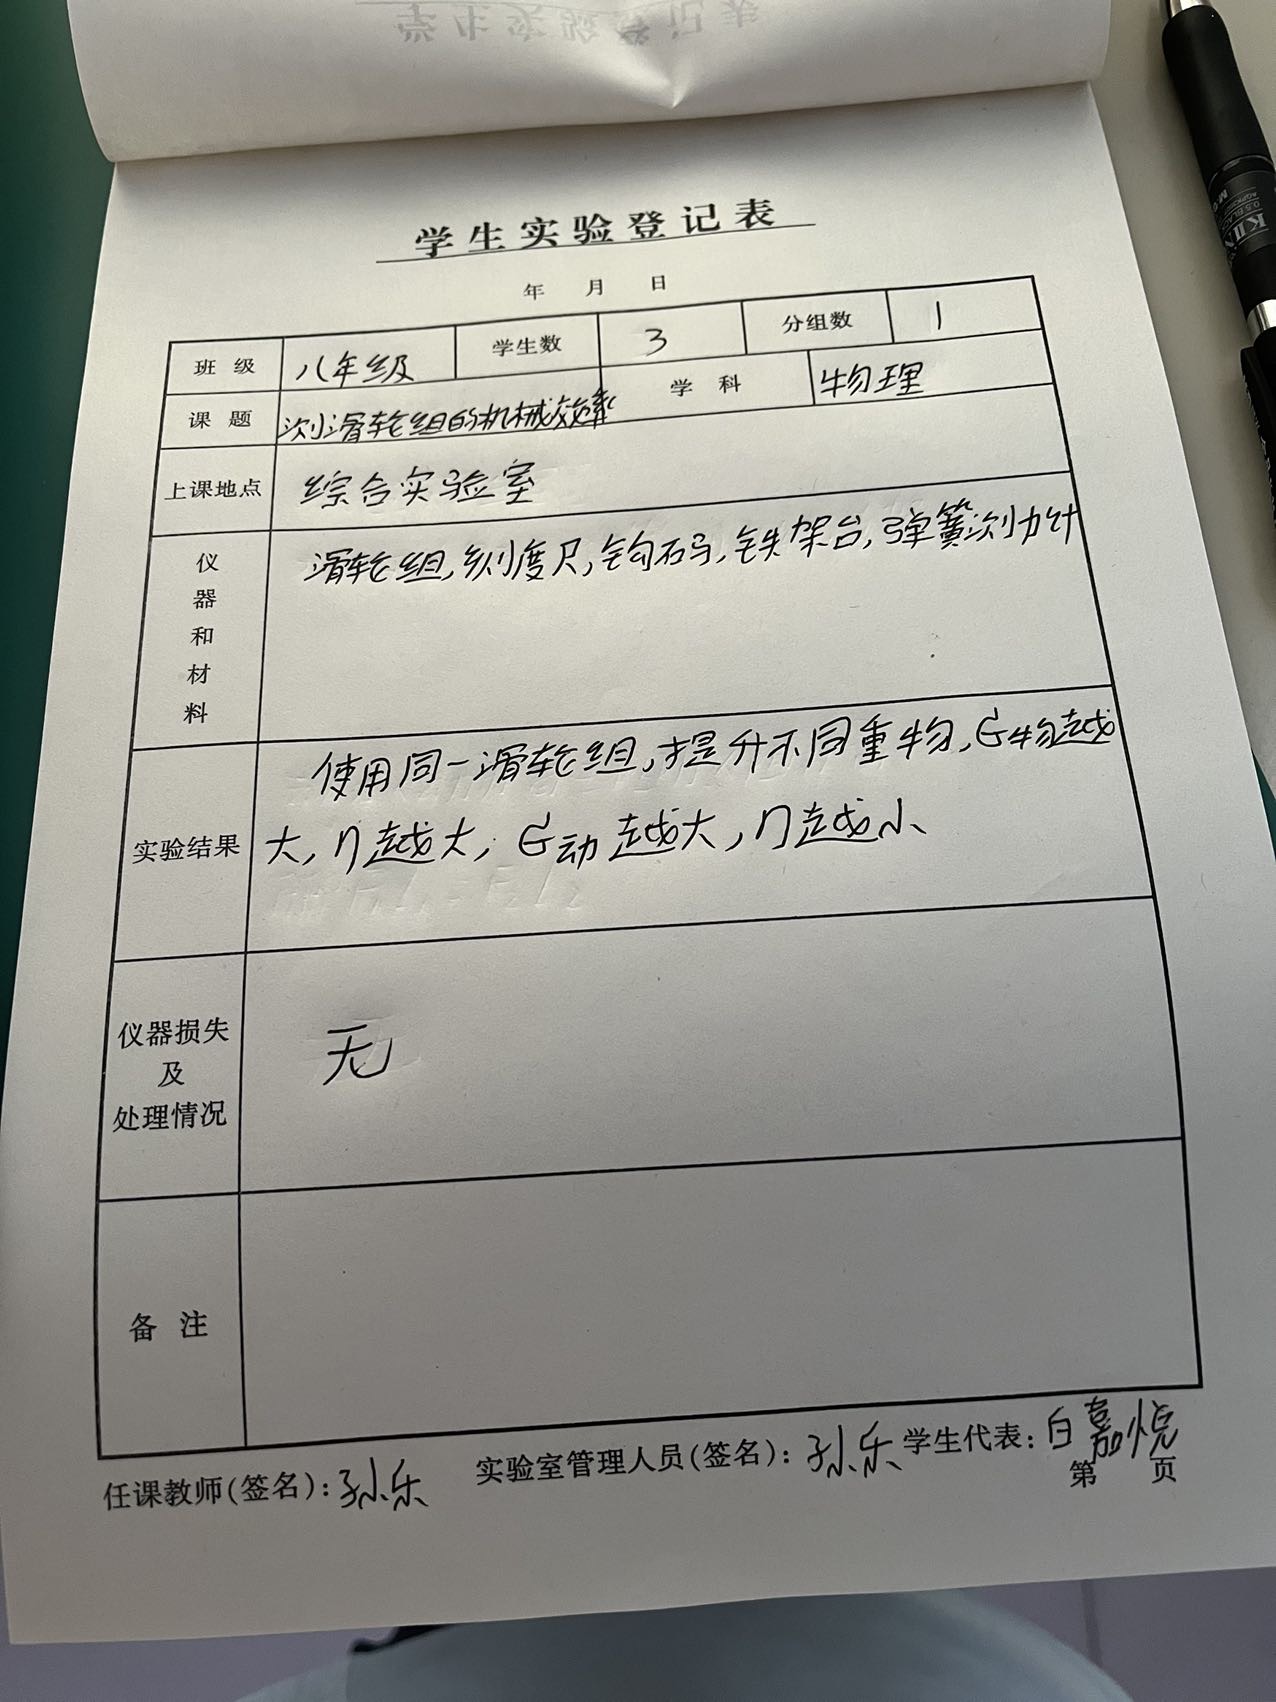 学生实验登记表
年 月 日
班级 八年级 学生数 3 分组数 1
课题 测滑轮组的机械效率 学科 物理
上课地点 综合实验室
仪器和材料 滑轮组,刻度尺,钩码,铁架台,弹簧测力计
实验结果 使用同一滑轮组,提升不同重物,G物越
大,η越大;G动越大,η越小
仪器损失
及
处理情况 无
备注
任课教师(签名):孙乐 实验室管理人员(签名):孙乐 学生代表:白嘉悦
第 页